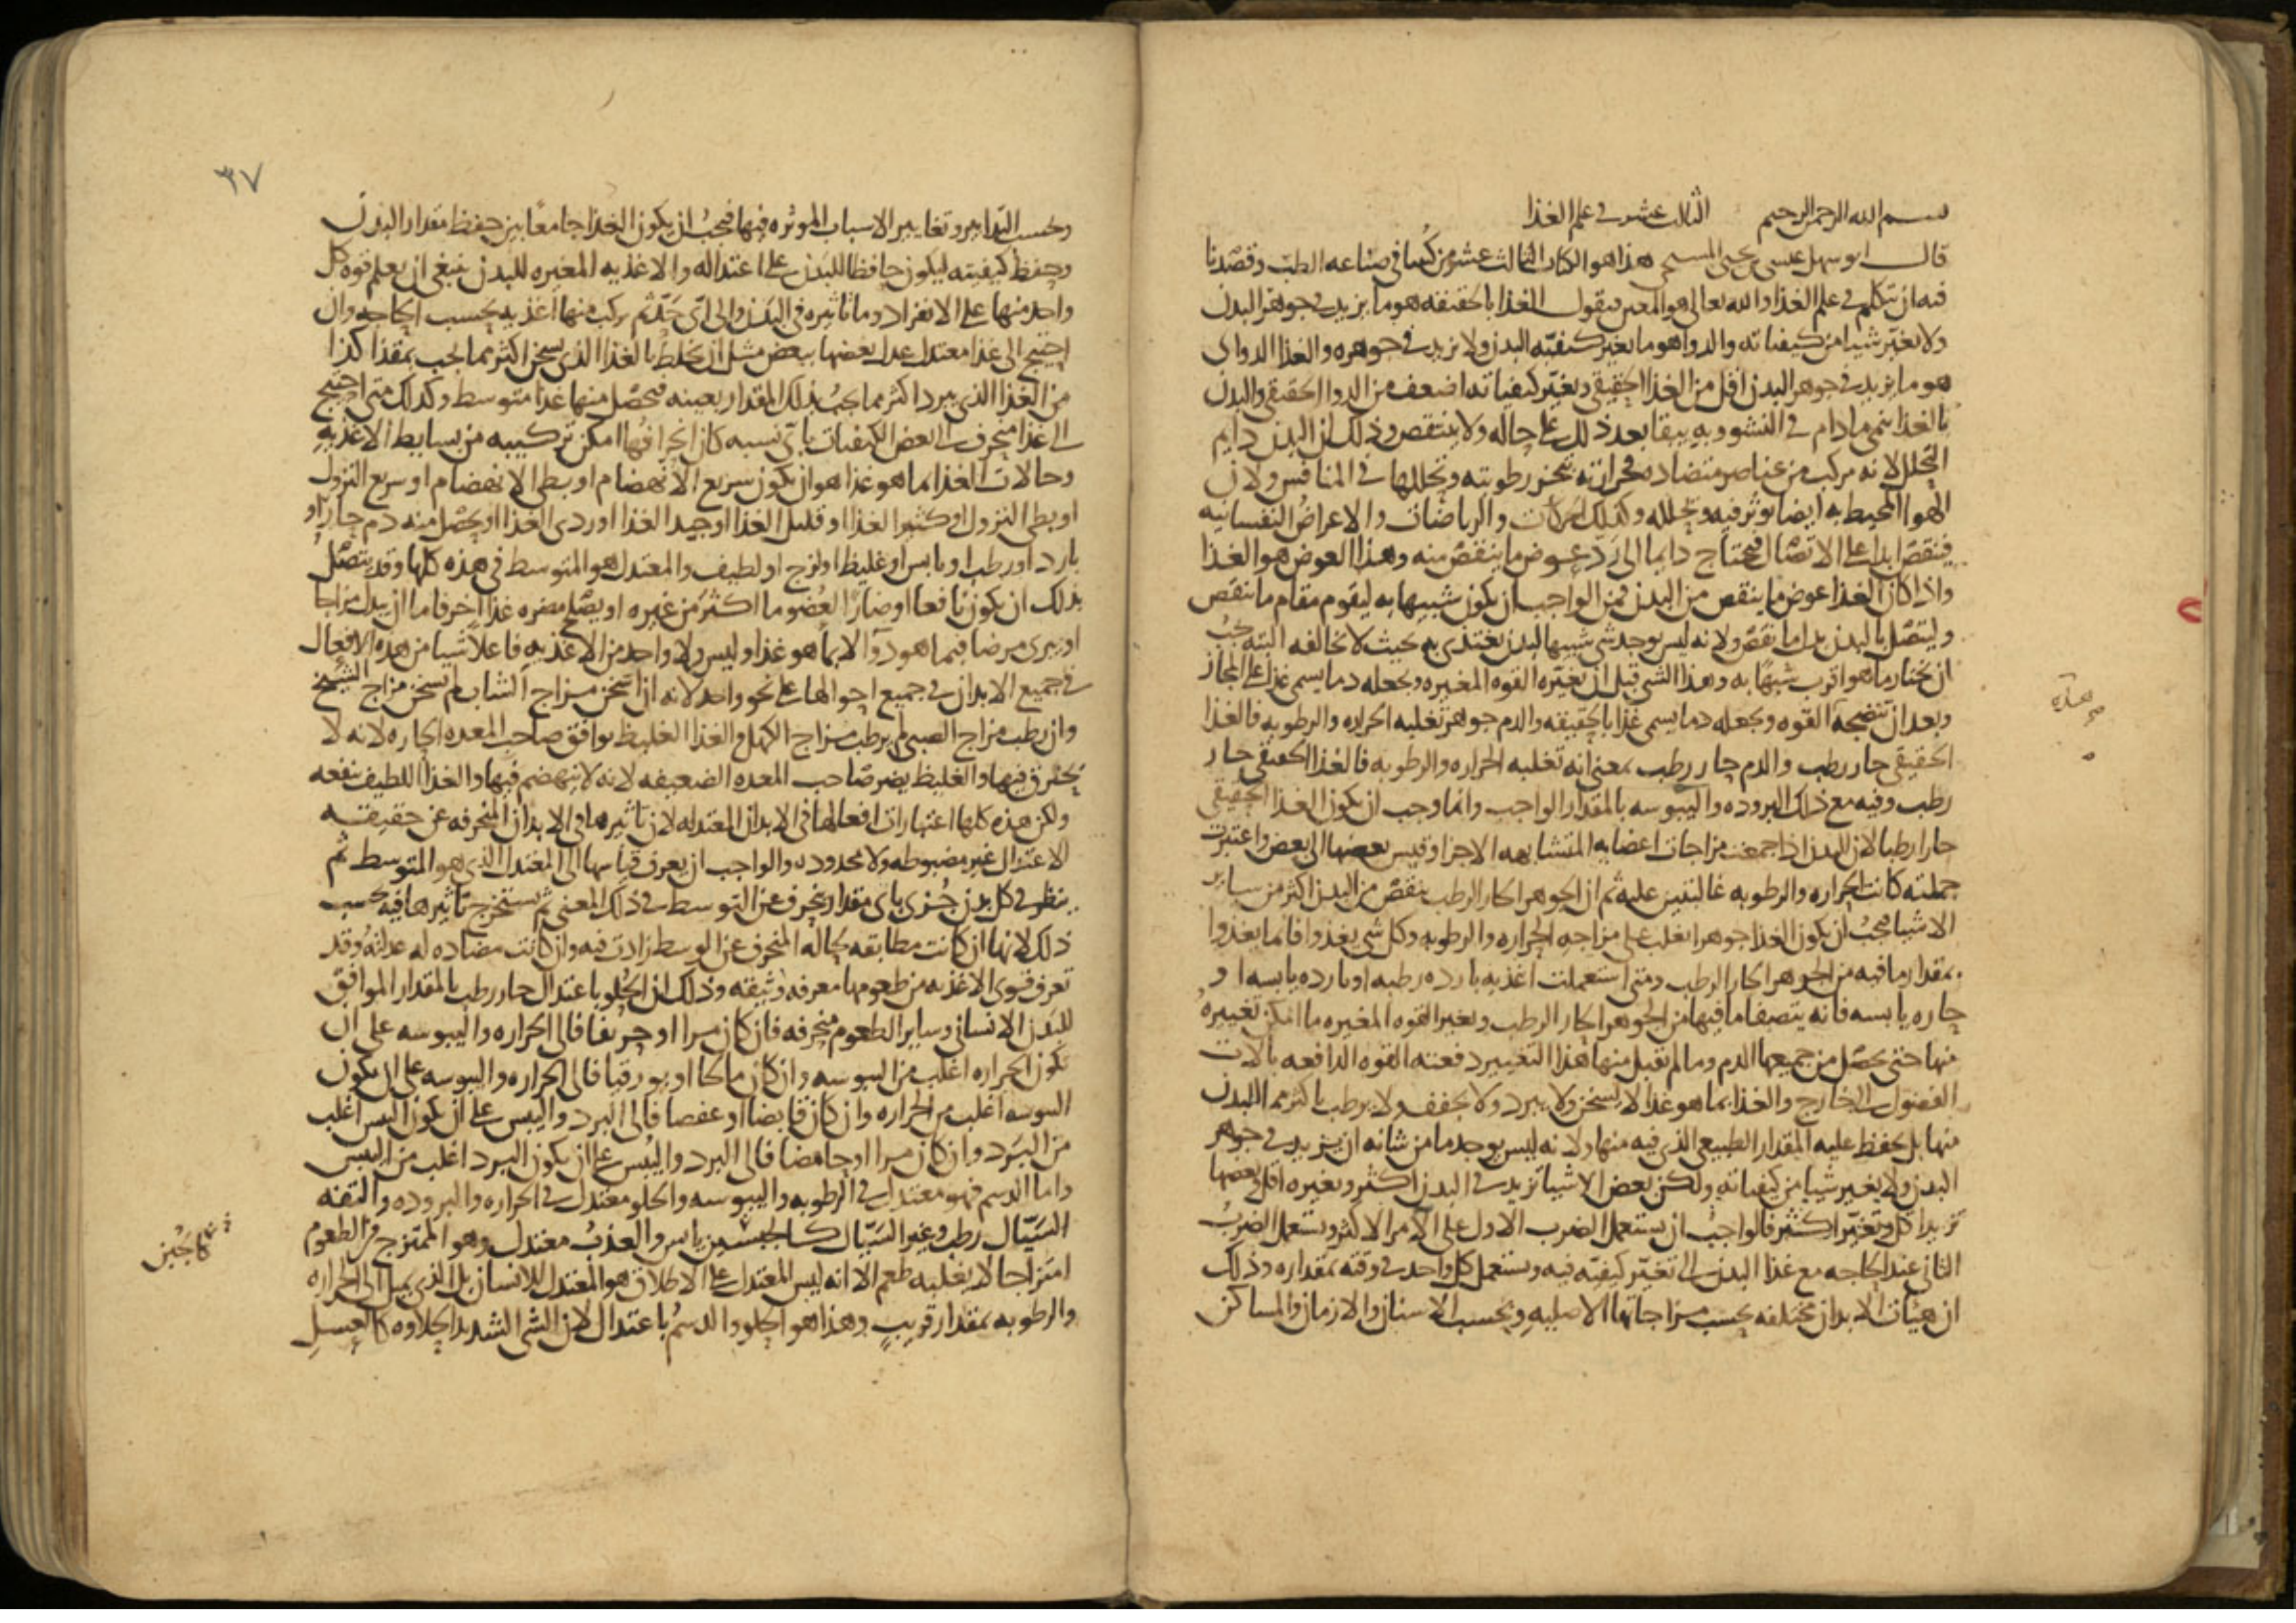 بسم الله الرحمن الرحيم الثالث عشر في علم الغذا
قال ابو سهل عيسى بن يحيى المسيحي هذا هو الكتاب الثالث عشر من كتبنا في صناعه الطب وقصدنا
فيه ان نتكلم في علم الغذا والله تعالى هو المعين فنقول الغذا بالحقيقه هو ما يزيد في جوهر البدن
ولا يغير شيا من كيفياته والدوا هو ما يغير كيفيه البدن ولا يزيد في جوهره والغذا الدوائ
هو ما يزيد في جوهر البدن اقل من الغذا الحقيقي ويغير كيفياته اضعف من الدوا الحقيقي والبدن
بالغذا ينمي ما دام في النشو وبه يبقا بعد ذلك على حاله ولا ينتقص وذلك ان البدن دايم
التحلل لانه مركب من عناصر متضاده فحرارته تبخر رطوبته وتحللها في المنافس ولان
الهوا المحيط به ايضا يوثر فيه ويحلله وكذلك الحركات والرياضات والاعراض النفسانيه
فينقص ابدا على الاتصال فيحتاج دايما الى رد عوض ما ينقص منه وهذا العوض هو الغذا
واذا كان الغذا عوض ما ينقص من البدن فمن الواجب ان يكون شبيها به ليقوم مقام ما نقص
وليتصل بالبدن بدل ما نقص ولانه ليس يوجد شي شبيها لبدن يغتذى به بحيث لا يخالفه البته يجب
ان يختار ما هو اقرب شبها به وهذا الشي قبل ان تغيره القوه المغيره وتجعله دما يسمى غذا على المجاز
وبعد ان تنضجه القوه وتجعله دما يسمى غذا بالحقيقه والدم جوهر تغلبه الحراره والرطوبه فالغذا
الحقيقي حار رطب والدم حار رطب بمعنى انه تغلبه الحراره والرطوبه فالغذا الحقيقي حار
رطب وفيه مع ذلك البروده واليبوسه بالمقدار الواجب وانما وجب ان يكون الغذا الحقيقي
حارا رطبا لان البدن اذا جمعت مزاجات اعضايه المتشابهه الاجزا وقيس بعضها الى بعض واعتبرت
جملته كانت الحراره والرطوبه غالبتين عليه ثم ان الجوهر الحار الرطب ينقص من البدن اكثر من ساير
الاشيا فيجب ان يكون الغذا جوهرا يغلب على مزاجه الحراره والرطوبه وكل شي يغذوا فانما يغذوا
بمقدار ما فيه من الجوهر الحار الرطب ومتى استعملت اغذيه بارده رطبه او بارده يابسه او
حاره يابسه فانه يتصفا ما فيها من الجوهر الحار الرطب وتغير القوه المغيره ما امكن تغييره
منها حتى يحصل من جميعها الدم وما لم تقبل منها هذا التغيير دفعته القوه الدافعه بالات
الفضول الى الخارج والغذا بما هو غذا لا يسخن ولا يبرد ولا يجفف ولا يرطب باكثر مما للبدن
منها بل يحفظ عليه المقدار الطبيعي الذي فيه منها ولانه ليس يوجد ما من شانه ان يزيد في جوهر
البدن ولا يغير شيا من كيفياته ولكن بعض الاشيا تزيد في البدن اكثر وتغيره اقل وبعضها
تزيد اقل وتغير اكثر فالواجب ان يستعمل الضرب الاول على الامر الاكثر ويستعمل الضرب
الثاني عند الحاجه مع غذا البدن الى تغير كيفيه فيه ويستعمل كل واحد في وقته بمقداره وذلك
ان هيئات الابدان مختلفه بحسب مزاجاتها الاصليه وبحسب الاسنان والازمان والمساكن
٣٧
وبحسب التدابير وتغايير الاسباب الموثره فيها فيجب ان يكون الغذا جامعا بين حفظ مقدار البدن
وحفظ كيفيته ليكون حافظا للبدن على اعتداله والاغذيه المغيره للبدن ينبغي ان يعلم قوه كل
واحد منها على الانفراد وما تاثيره في البدن والى اي حد ثم يركب منها اغذيه بحسب الحاجه وان
احتيج الى غذا معتدل عدل بعضها ببعض مثل ان يخلط بالغذا الذي يسخن اكثر مما يجب بمقدار كذا
من الغذا الذي يبرد اكثر مما يجب بذلك المقدار بعينه فيحصل منها غذا متوسط وكذلك متى احتيج
الى غذا منحرف الى بعض الكيفيات باي نسبه كان انحرافها امكن تركيبه من بسايط الاغذيه
وحالات الغذا بما هو غذا هو ان يكون سريع الانهضام او بطي الانهضام او سريع النزول
او بطي النزول او كثير الغذا او قليل الغذا او جيد الغذا او ردي الغذا او يحصل منه دم حار او
بارد او رطب او يابس او غليظ او لزج او لطيف والمعتدل هو المتوسط في هذه كلها وقد يتصل
بذلك ان يكون نافعا او ضارا لعضو ما اكثر من غيره او يصلح مضره غذا اخر فاما ان يبدل مزاجا
او يبري مرضا فبما هو دوآ لا بما هو غذا وليس ولا واحد من الاغذيه فاعلا شيا من هذه الافعال
في جميع الابدان في جميع احوالها على نحو واحد لانه ان اسخن مزاج الشاب لم يسخن مزاج الشيخ
وان رطب مزاج الصبي لم يرطب مزاج الكهل والغذا الغليظ يوافق صاحب المعده الحاره لانه لا
يحترق فيها والغليظ يضر صاحب المعده الضعيفه لانه لا ينهضم فيها والغذا اللطيف ينفعه
ولكن هذه كلها اعتبارات افعالها في الابدان المعتدله لان تاثيرها في الابدان المنحرفه عن حقيقه
الاعتدال غير مضبوطه ولا محدوده والواجب ان يعرف قياسها الى المعتدل الذي هو المتوسط ثم
ينظر في كل بدن جزى باى مقدار ينحرف عن التوسط في ذلك المعنى ثم يستخرج تاثيرها فيه بحسب
ذلك لانها ان كانت مطابقه لحاله المنحرف عن الوسط زادت فيه وان كانت مضاده له عدلته وقد
تعرف قوى الاغذيه من طعومها معرفه وثيقه وذلك ان الحلو باعتدال حار رطب بالمقدار الموافق
للبدن الانساني وساير الطعوم منحرفه فان كان مرا او حريفا فالى الحراره واليبوسه على ان
تكون الحراره اغلب من اليبوسه وان كان مالحا او بورقيا فالى الحراره واليبوسه على ان يكون
اليبوسه اغلب من الحراره وان كان قابضا او عفصا فالى البرد واليبس على ان يكون اليبس اغلب
من البرد وان كان مرا او حامضا فالى البرد واليبس على ان يكون البرد اغلب من اليبس
واما الدسم فهو معتدل في الرطوبه واليبوسه والحلو معتدل في الحراره والبروده والتفه
السيال رطب وغير السيال كالجبسين يابس والعذب معتدل وهو الممتزج من الطعوم
كالجبن
امتزاجا لا يغلبه طعم الا انه ليس المعتدل على الاطلاق هو المعتدل للانسان بل الذي يميل الى الحراره
والرطوبه بمقدار قريب وهذا هو الحلو والدسم باعتدال لان الشي الشديد الحلاوه كالعسل